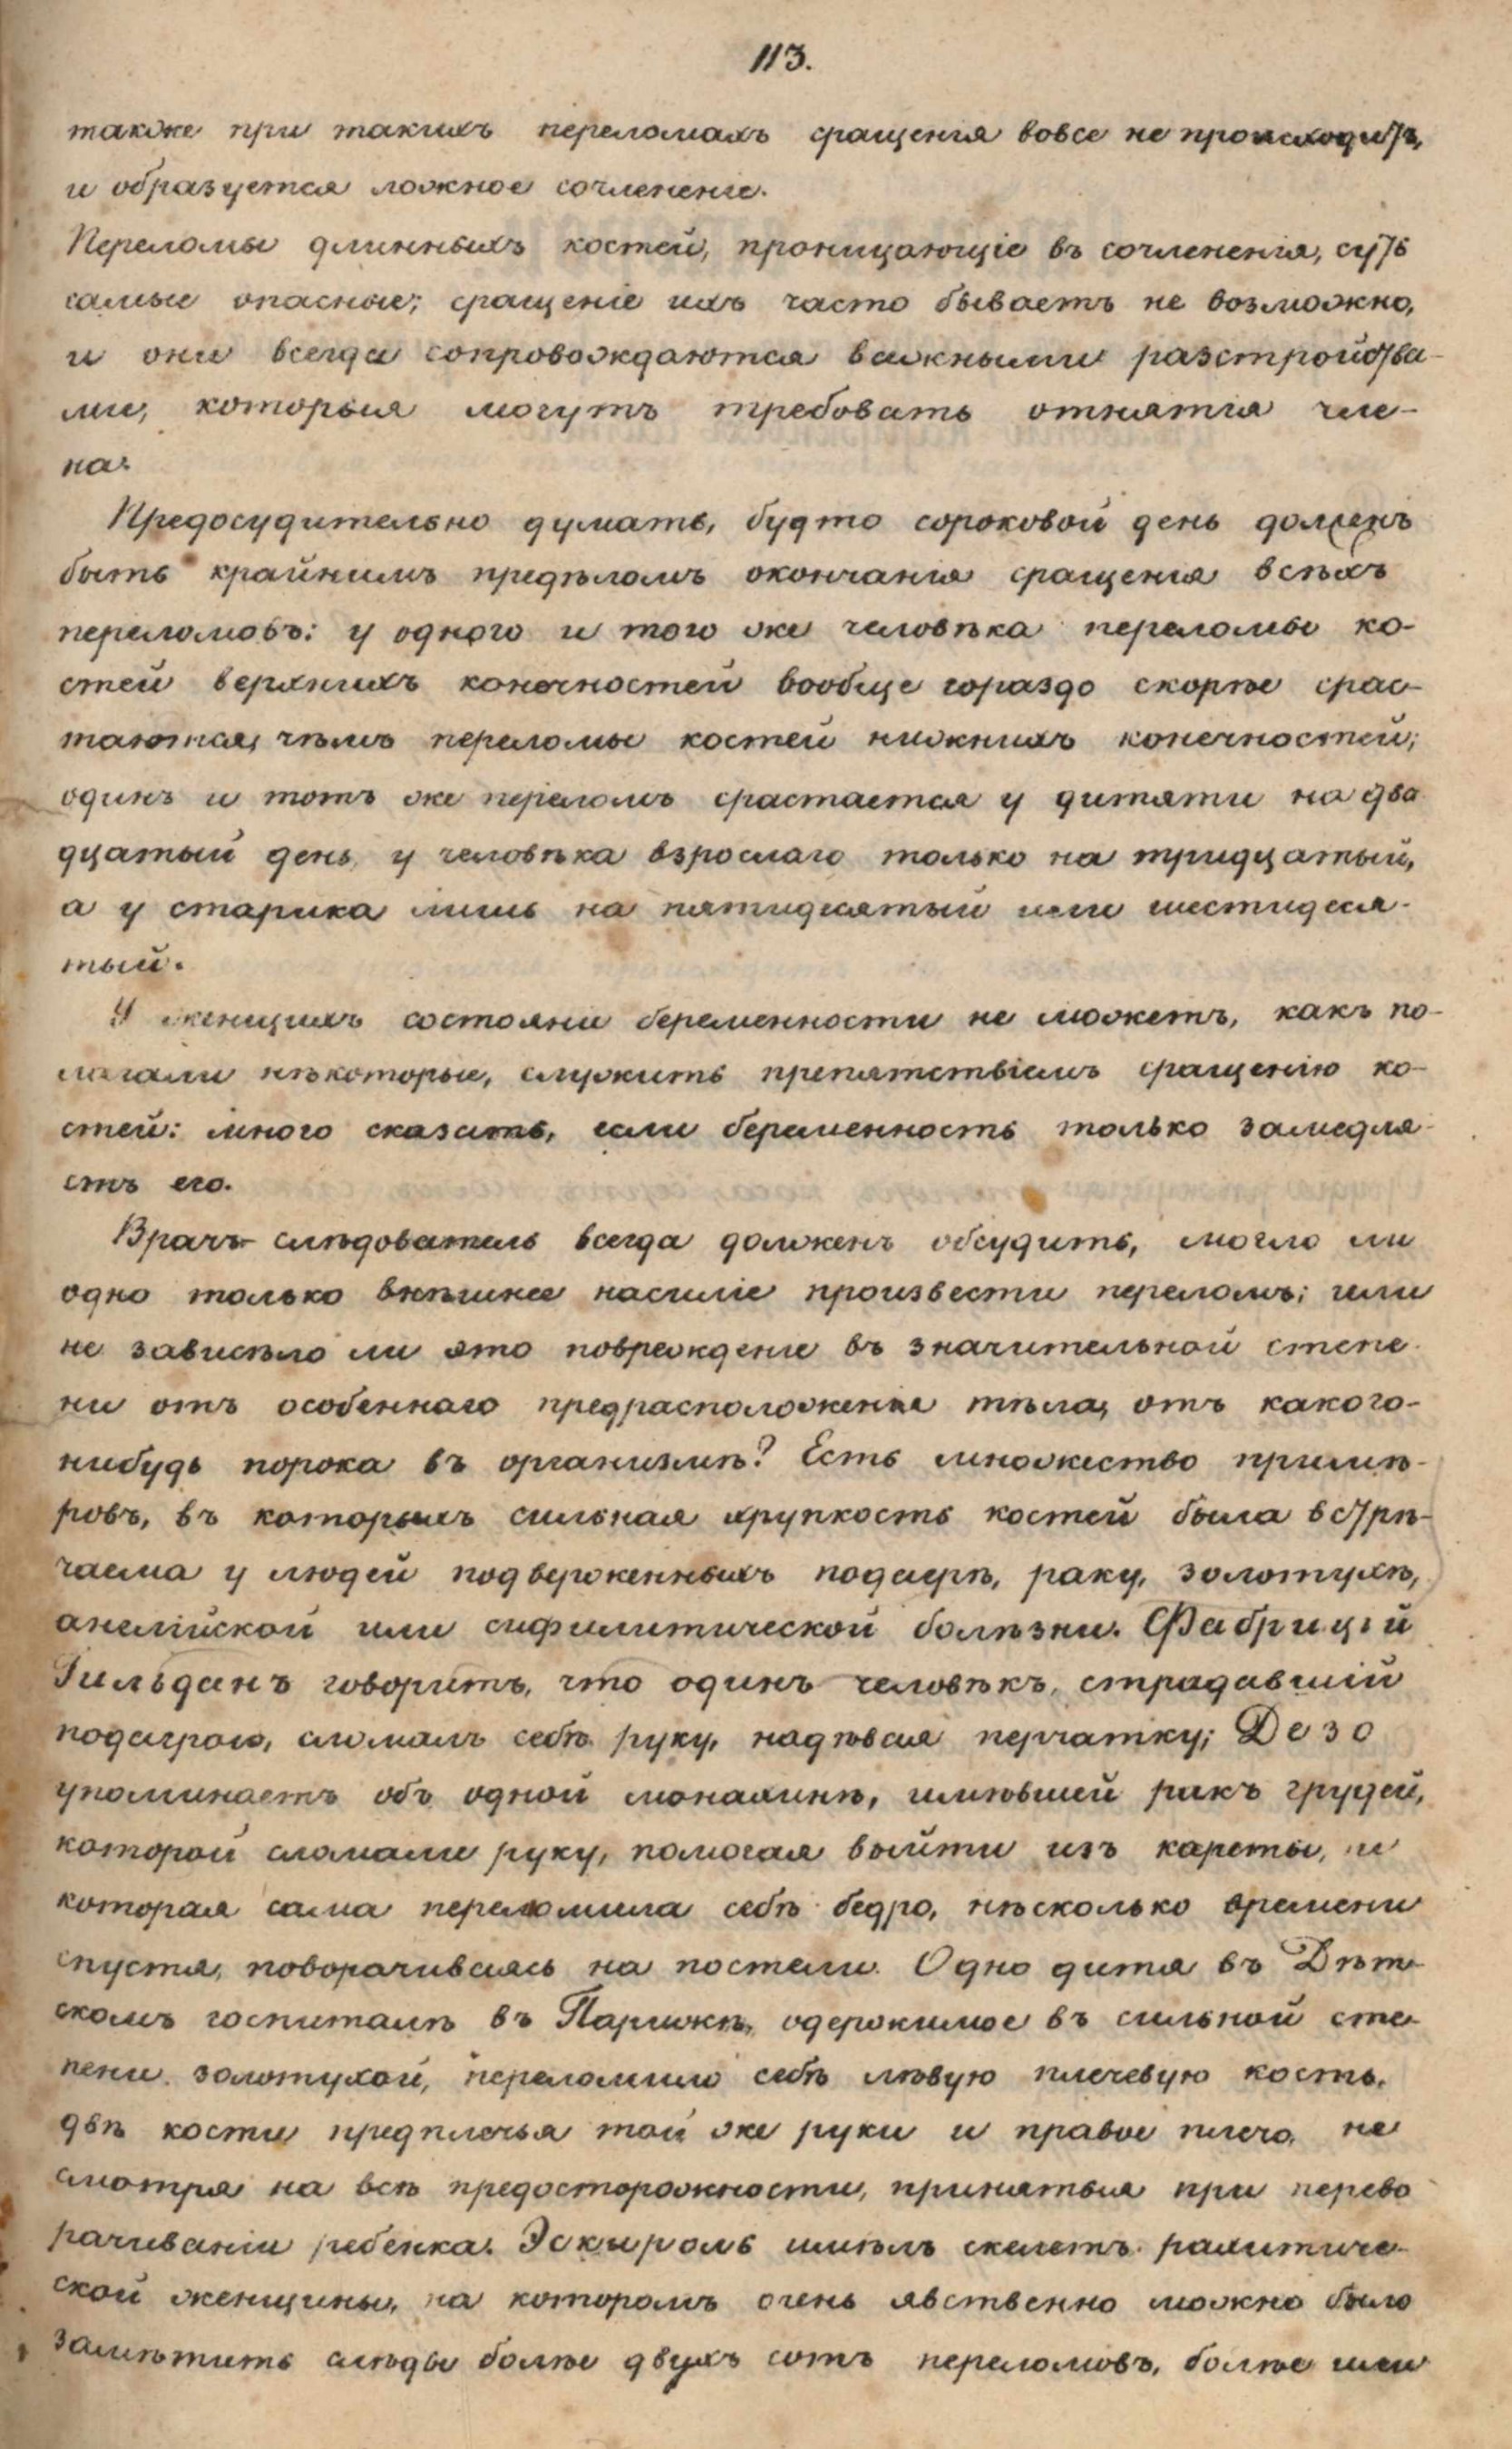 113.
также при такихъ переломахъ сращенія вовсе не происходитъ,
и образуется ложное сочлененіе.
Переломы длинныхъ костей, проницающіе въ сочлененія, суть
самые опасные; сращеніе ихъ часто бываетъ не возможно,
и они всегда сопровождаются важными разстройства-
ми, которыя могутъ требовать отнятія чле-
на.
Предосудительно думать, будто сороковой день долженъ
быть крайнимъ предѣломъ окончанія сращенія всѣхъ
переломовъ: у одного и того же человѣка переломы ко-
стей верхнихъ конечностей вообще гораздо скорѣе срас-
таются, чѣмъ переломы костей нижнихъ конечностей;
одинъ и тотъ же переломъ срастается у дитяти на два
дцатый день, у человѣка взрослаго только на тридцатый,
а у старика лишь на пятидесятый или шестидеся-
тый.
У женщинъ состояніи беременности не можетъ, какъ по-
лагали нѣкоторые, служить препятствіемъ сращенію ко-
стей: много сказать, если беременность только замедля-
етъ его.
Врачъ-слѣдователь всегда долженъ обсудить, могло ли
одно только внѣшнее насиліе произвести переломъ; или
не зависѣло ли это поврежденіе въ значительной степе-
ни отъ особеннаго предрасположенія тѣла, отъ какого-
нибудь порока въ организмѣ? Есть множество примѣ-
ровъ, въ которыхъ сильная хрупкость костей была встрѣ-
чаема у людей подверженныхъ подагрѣ, раку, золотухѣ,
англійской или сифилитической болѣзни. Фабрицій
Гильданъ говоритъ, что одинъ человѣкъ, страдавшій
подагрою, сломалъ себѣ руку, надѣвая перчатку; Дезо
упоминаетъ объ одной монахинѣ, имѣвшей ракъ грудей,
которой сломали руку, помогая выйти изъ кареты, и
которая сама переломила себѣ бедро, нѣсколько времени
спустя, поворачиваясь на постели. Одно дитя въ Дѣт-
скомъ госпиталѣ въ Парижѣ, одержимое въ сильной сте-
пени золотухой, переломило себѣ лѣвую плечевую кость,
двѣ кости предплечья той же руки и правое плечо, не
смотря на всѣ предосторожности, принятыя при перево
рачиваніи ребенка. Эскироль имѣлъ скелетъ рахитиче-
ской женщины, на которомъ очень явственно можно было
замѣтить слѣды болѣе двухъ сотъ переломовъ, болѣе или